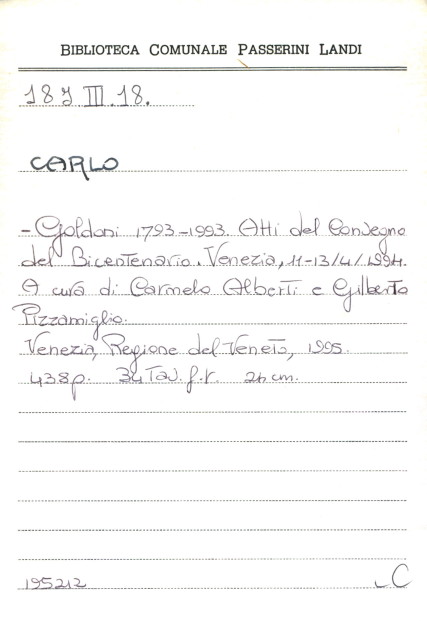 BIBLIOTECA COMUNALE PASSERINI LANDI
18 J III.18.
CARLO
- Goldoni 1793-1993. Atti del Convegno
del Bicentenario. Venezia, 11-13/4/1994.
A cura di Carmelo Alberti e Gilberto
Pizzamiglio.
Venezia, Regione del Veneto, 1995.
438p. 34 Tav. f.t. 24 cm.
195212
C